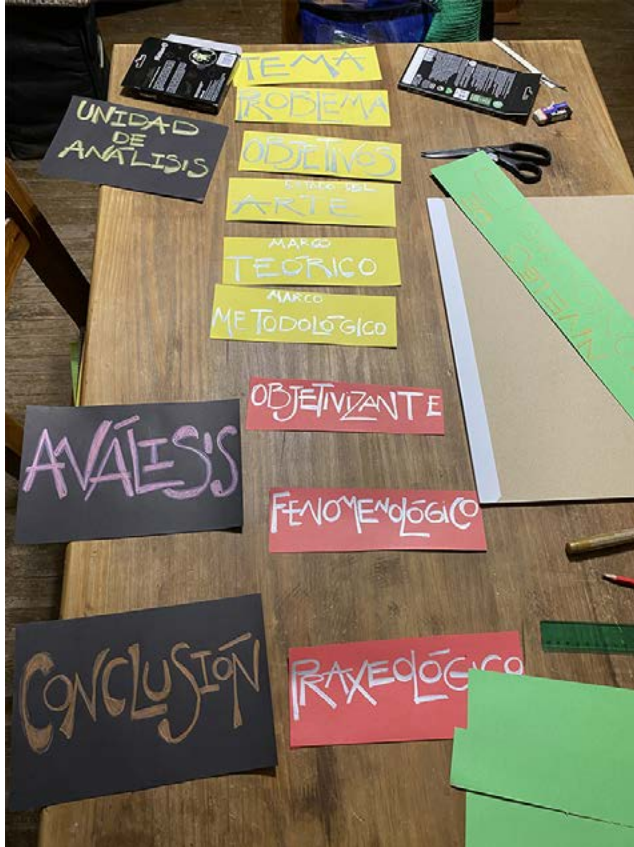 TEMA
PROBLEMA
UNIDAD
DE
ANÁLISIS
OBJETIVOS
ESTADO DEL
ARTE
MARCO
TEÓRICO
MARCO
METODOLÓGICO
OBJETIVIZANTE
ANÁLISIS
FENOMENOLÓGICO
CONCLUSIÓN
PRAXEOLÓGICO